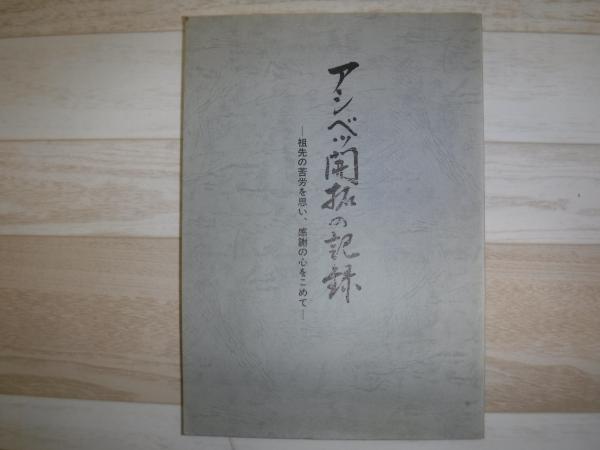 アシベツ開拓の記録
―祖先の苦労を思い、感謝の心をこめて―